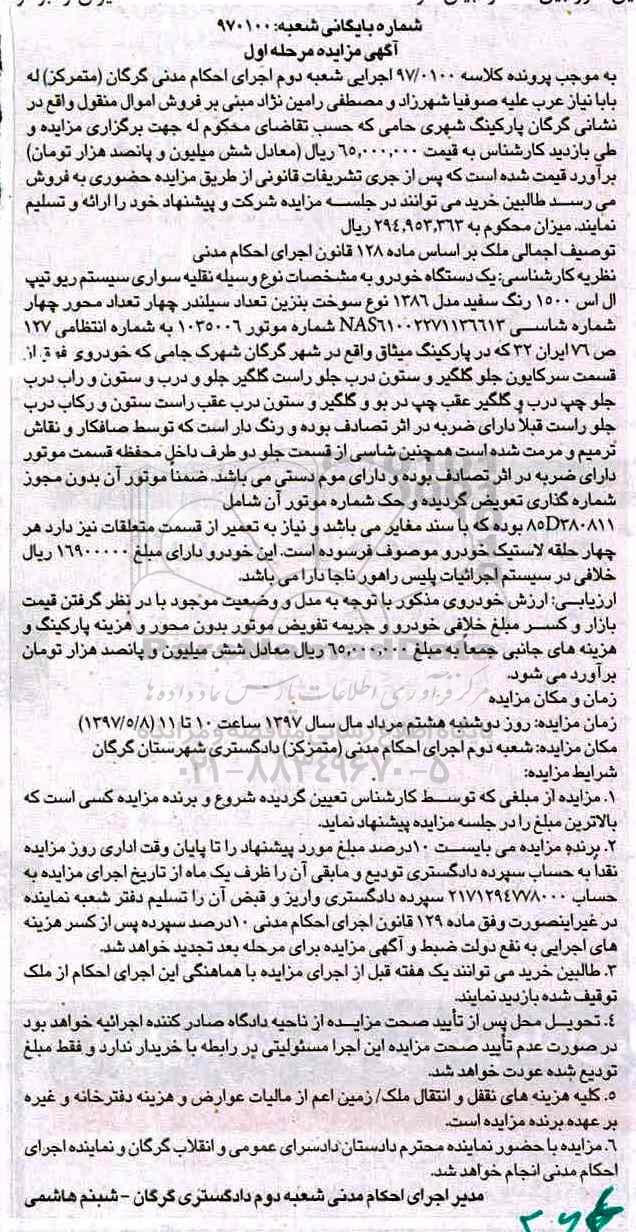 شماره بایگانی شعبه: ۹۷۰۱۰۰
آگهی مزایده مرحله اول
به موجب پرونده کلاسه ۹۷/۰۱۰۰ اجرایی شعبه دوم اجرای احکام مدنی گرگان (متمرکز) له
بابا نیاز عرب علیه صوفیا شهرزاد و مصطفی رامین نژاد مبنی بر فروش اموال منقول واقع در
نشانی گرگان پارکینگ شهری حامی که حسب تقاضای محکوم له جهت برگزاری مزایده و
طی بازدید کارشناس به قیمت ۶۵,۰۰۰,۰۰۰ ریال (معادل شش میلیون و پانصد هزار تومان)
برآورد قیمت شده است که پس از جری تشریفات قانونی از طریق مزایده حضوری به فروش
می رسد طالبین خرید می توانند در جلسه مزایده شرکت و پیشنهاد خود را ارائه و تسلیم
نمایند. میزان محکوم به ۲۹٤,۹۵۳,۳۶۳ ریال
توصیف اجمالی ملک بر اساس ماده ۱۲۸ قانون اجرای احکام مدنی
نظریه کارشناسی: یک دستگاه خودرو به مشخصات نوع وسیله نقلیه سواری سیستم ریو تیپ
ال اس ۱۵۰۰ رنگ سفید مدل ۱۳۸۶ نوع سوخت بنزین تعداد سیلندر چهار تعداد محور چهار
شماره شاسی NAS۶۱۰۰۲۲۷۱۱۳۶۶۱۳ شماره موتور ۱۰۳۵۰۰۶ به شماره انتظامی ۱۲۷
ص ۷۶ ایران ۳۲ که در پارکینگ میثاق واقع در شهر گرگان شهرک جامی که خودروی فوق از
قسمت سرکاپون جلو گلگیر و ستون درب جلو راست گلگیر جلو و درب و ستون و راب درب
جلو چپ درب و گلگیر عقب چپ در بو و گلگیر و ستون درب عقب راست ستون و رکاب درب
جلو راست قبلاً دارای ضربه در اثر تصادف بوده و رنگ دار است که توسط صافکار و نقاش
ترمیم و مرمت شده است همچنین شاسی از قسمت جلو دو طرف داخل محفظه قسمت موتور
دارای ضربه در اثر تصادف بوده و دارای موم دستی می باشد. ضمناً موتور آن بدون مجوز
شماره گذاری تعویض گردیده و حک شماره موتور آن شامل
۸۵D۳۸۰۸۱۱ بوده که با سند مغایر می باشد و نیاز به تعمیر از قسمت متعلقات نیز دارد هر
چهار حلقه لاستیک خودرو موصوف فرسوده است. این خودرو دارای مبلغ ۱۶۹۰۰۰۰۰ ریال
خلافی در سیستم اجرائیات پلیس راهور ناجا دارا می باشد.
ارزیابی: ارزش خودروی مذکور با توجه به مدل و وضعیت موجود با در نظر گرفتن قیمت
بازار و کسر مبلغ خلافی خودرو و جریمه تفویض موتور بدون محور و هزینه پارکینگ و
هزینه های جانبی جمعاً به مبلغ ۶۵,۰۰۰,۰۰۰ ریال معادل شش میلیون و پانصد هزار تومان
برآورد می شود.
زمان و مکان مزایده
زمان مزایده: روز دوشنبه هشتم مرداد مال سال ۱۳۹۷ ساعت ۱۰ تا ۱۱ (۱۳۹۷/۵/۸)
مکان مزایده: شعبه دوم اجرای احکام مدنی (متمرکز) دادگستری شهرستان گرگان
۰۲۱-۸۸۳۴۹۶۷۰-۵
شرایط مزایده:
۱. مزایده از مبلغی که توسط کارشناس تعیین گردیده شروع و برنده مزایده کسی است که
بالاترین مبلغ را در جلسه مزایده پیشنهاد نماید.
۲. برنده مزایده می بایست ۱۰درصد مبلغ مورد پیشنهاد را تا پایان وقت اداری روز مزایده
نقداً به حساب سپرده دادگستری تودیع و مابقی آن را ظرف یک ماه از تاریخ اجرای مزایده به
حساب ۲۱۷۱۲۹٤۷۷۸۰۰۰ سپرده دادگستری واریز و قبض آن را تسلیم دفتر شعبه نماینده
در غیراینصورت وفق ماده ۱۲۹ قانون اجرای احکام مدنی ۱۰درصد سپرده پس از کسر هزینه
های اجرایی به نفع دولت ضبط و آگهی مزایده برای مرحله بعد تجدید خواهد شد.
۳. طالبین خرید می توانند یک هفته قبل از اجرای مزایده با هماهنگی این اجرای احکام از ملک
توقیف شده بازدید نمایند.
٤. تحویل محل پس از تأیید صحت مزایده از ناحیه دادگاه صادر کننده اجرائیه خواهد بود
در صورت عدم تأیید صحت مزایده این اجرا مسئولیتی در رابطه با خریدار ندارد و فقط مبلغ
تودیع شده عودت خواهد شد.
۵. کلیه هزینه های نقفل و انتقال ملک/ زمین اعم از مالیات عوارض و هزینه دفترخانه و غیره
بر عهده برنده مزایده است.
۶. مزایده با حضور نماینده محترم دادستان دادسرای عمومی و انقلاب گرگان و نماینده اجرای
احکام مدنی انجام خواهد شد.
مدیر اجرای احکام مدنی شعبه دوم دادگستری گرگان - شبنم هاشمی